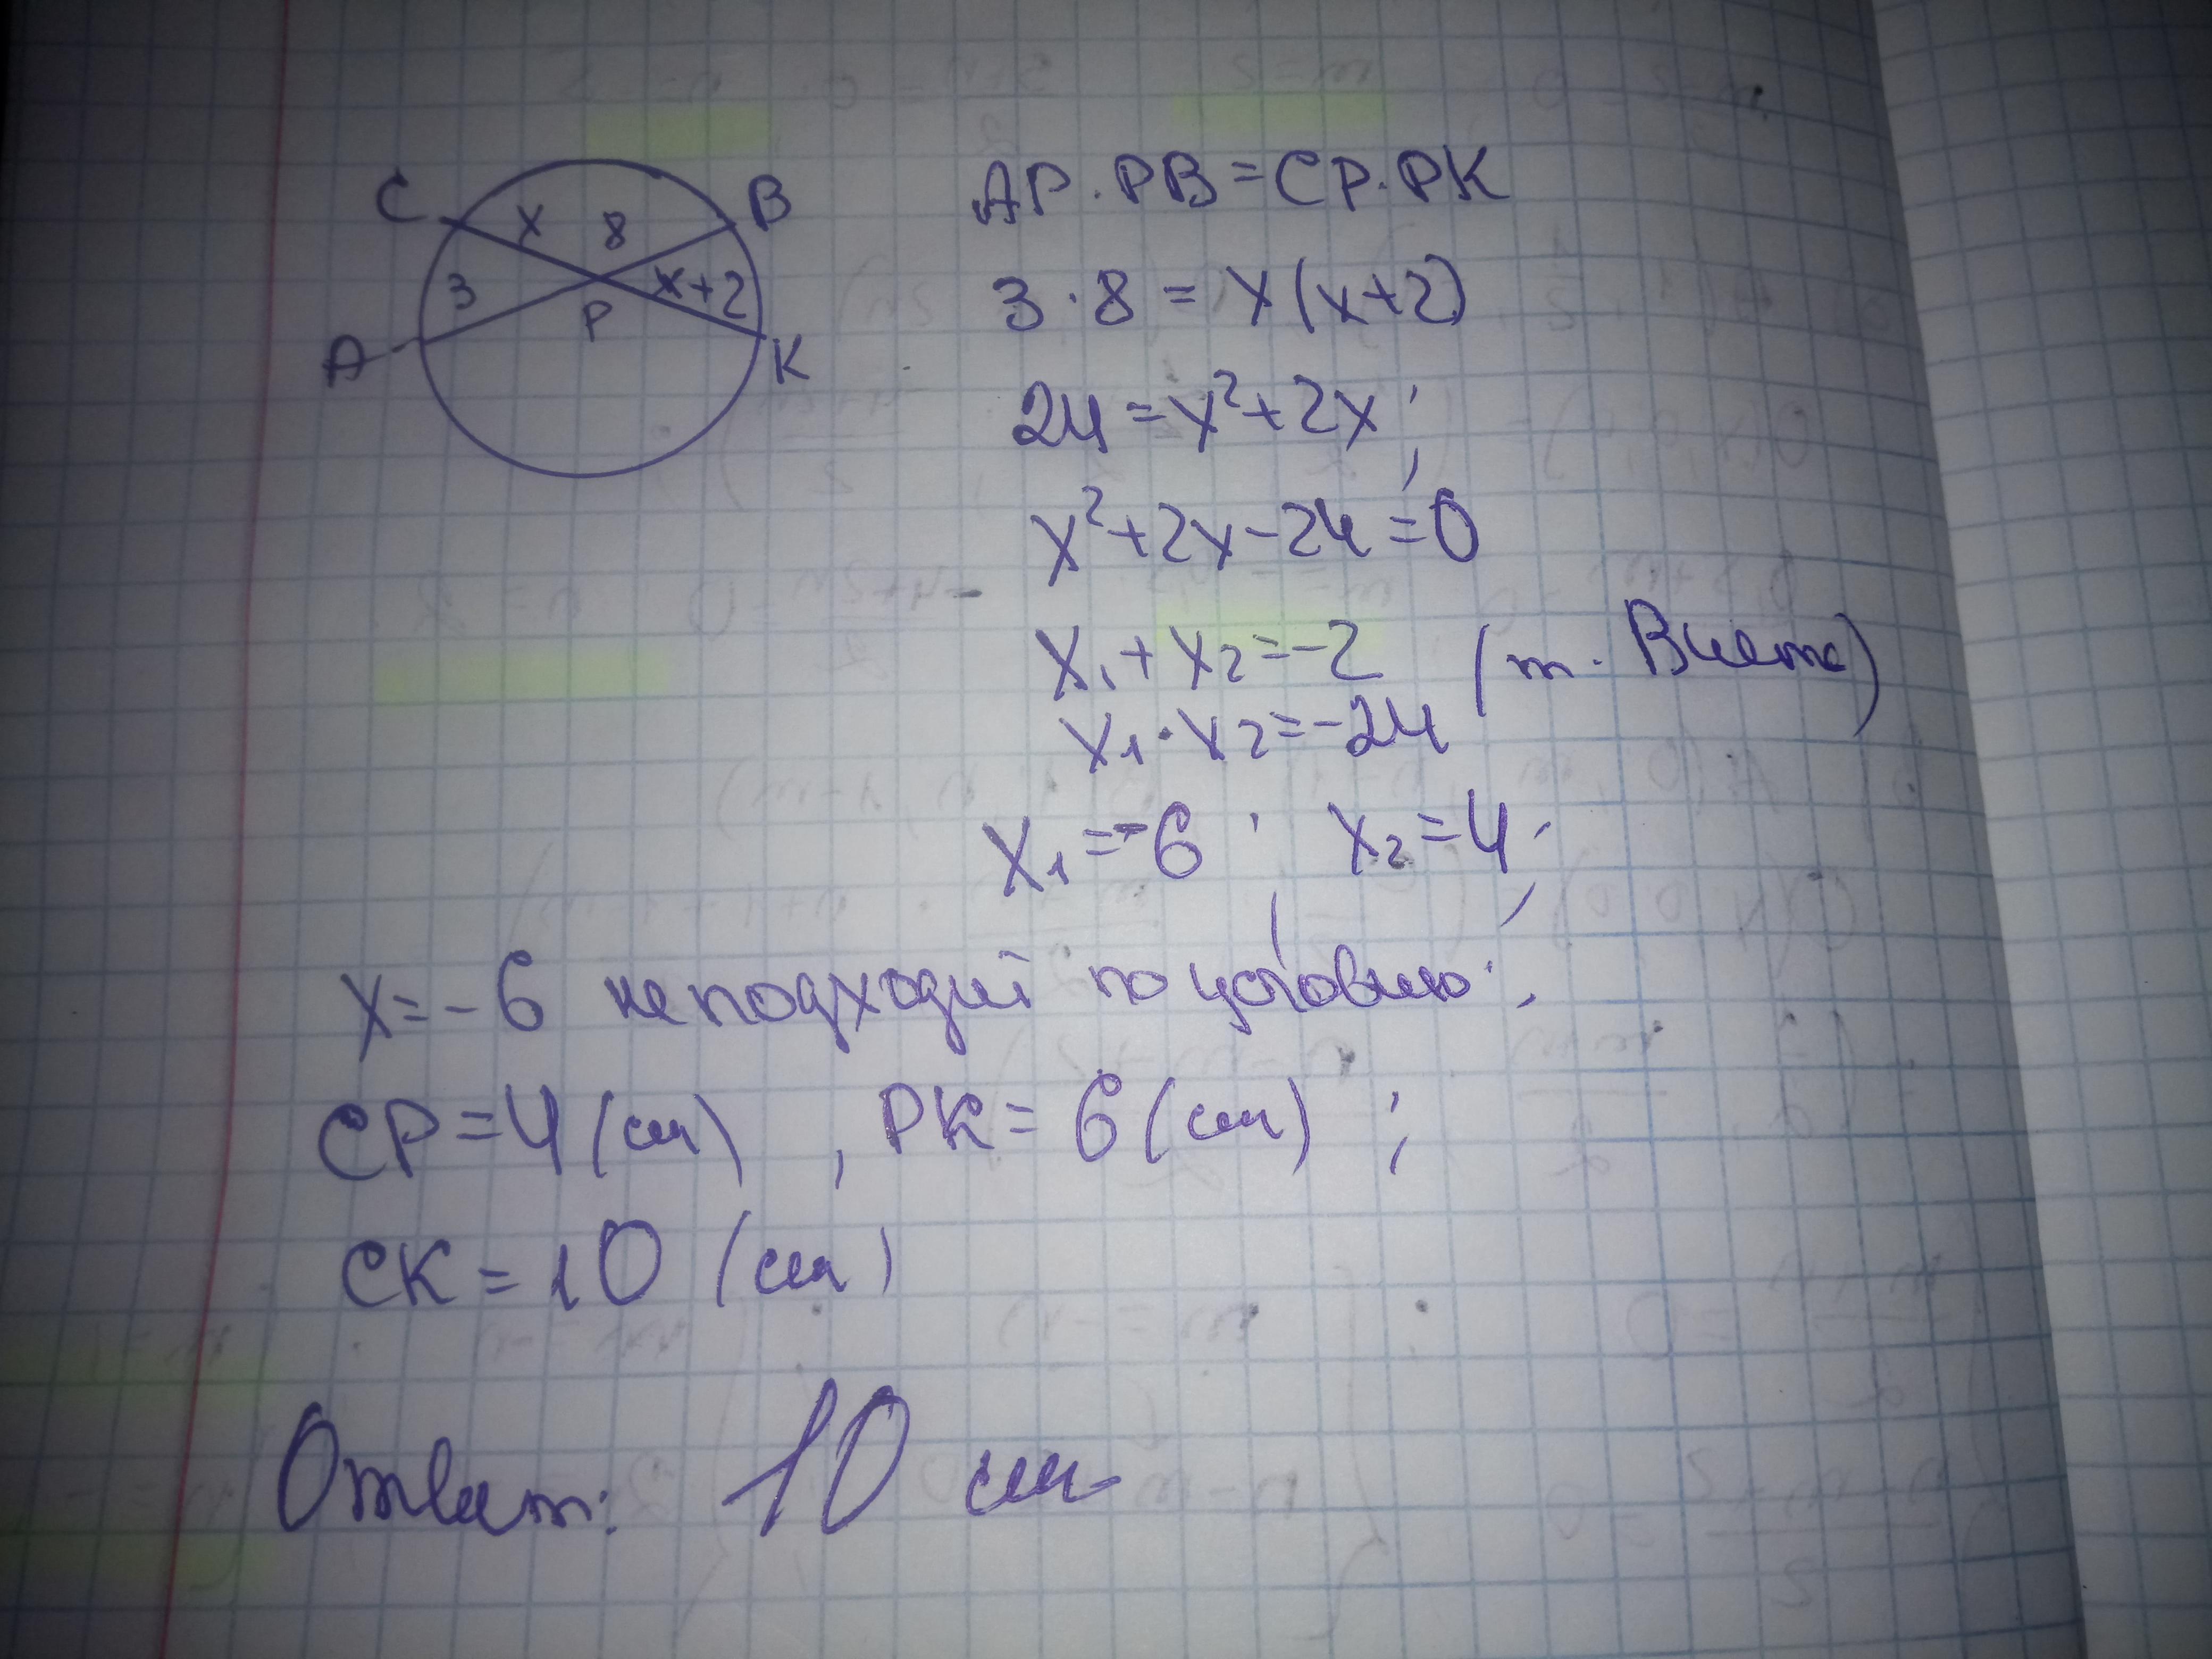 C x 8 B
3 x+2
A P K
AP·PB=CP·PK
3·8=x(x+2)
24=x²+2x;
x²+2x-24=0
x₁+x₂=-2 (т. Виета)
x₁·x₂=-24
x₁=-6; x₂=4;
x=-6 не подходит по условию;
CP=4(см), PK=6(см);
CK=10(см)
Ответ: 10 см